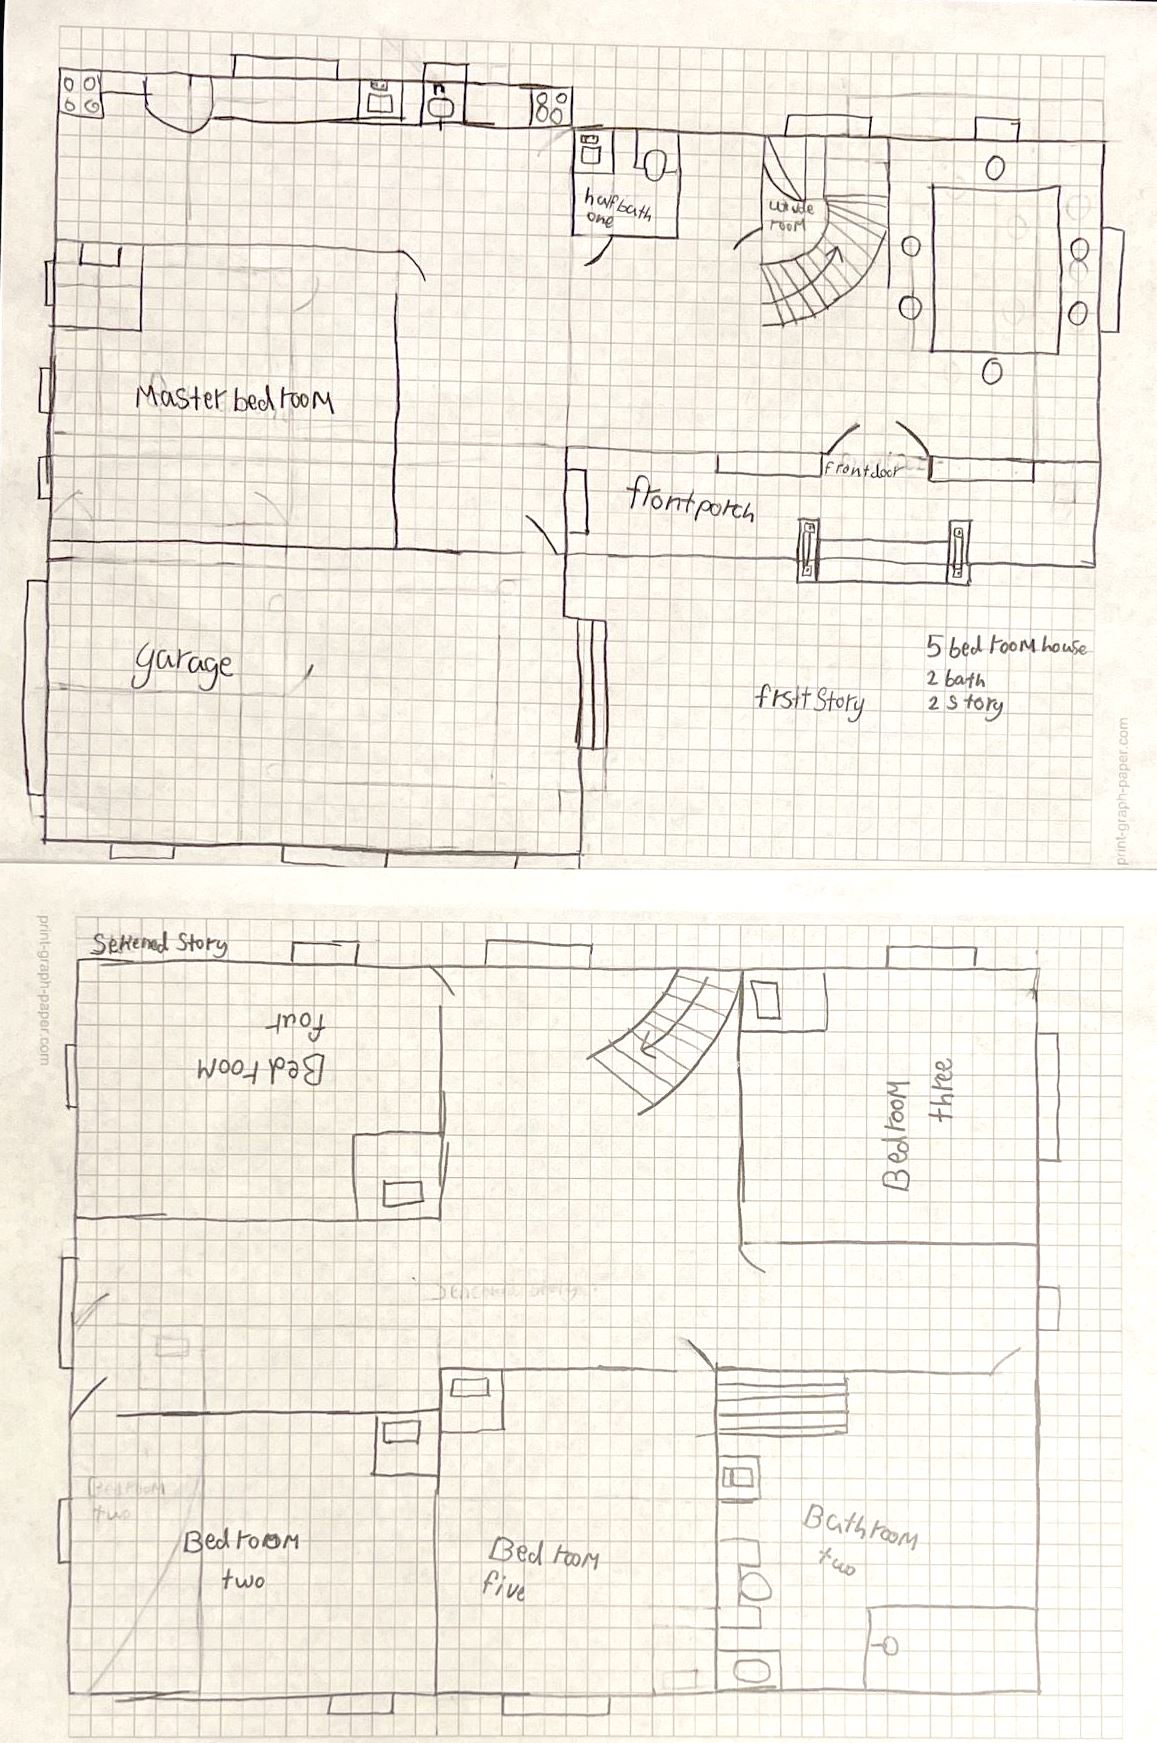 half bath
one
room
Master bedroom
frontdoor
frontporch
garage
5 bedroom house
2 bath
2 story
frsitStory
print-graph-paper.com
print-graph-paper.com
Sekened Story
Bedroom
four
Bedroom
three
Bedroom
two
Bedroom
two
Bedroom
five
Bathroom
two